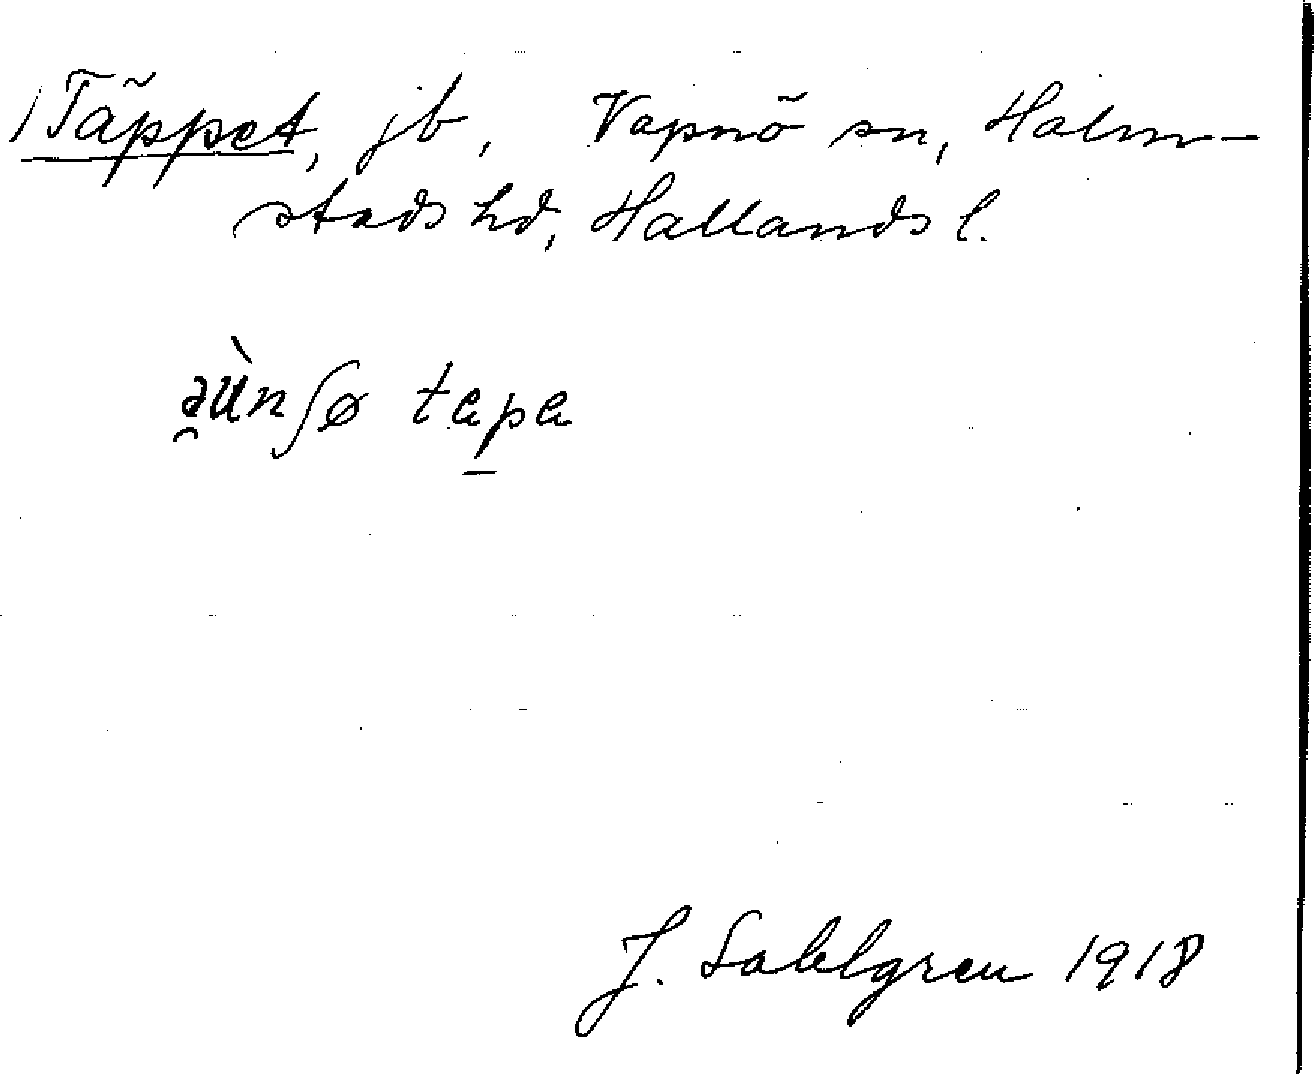 Täppet, jb, Vapnö sn, Halm-
stads hd, Hallands l.
J. Sahlgren 1918